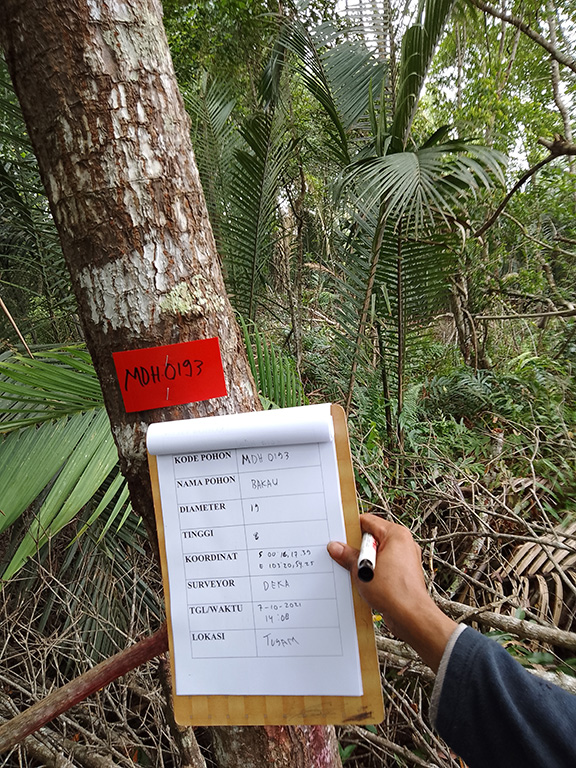 MDH 0193
KODE POHON MDH 0193
NAMA POHON BAKAU
DIAMETER 19
TINGGI 8
KOORDINAT S 00 16,17.39
E 103 20,59.25
SURVEYOR DEKA
TGL/WAKTU 7-10-2021
14:00
LOKASI